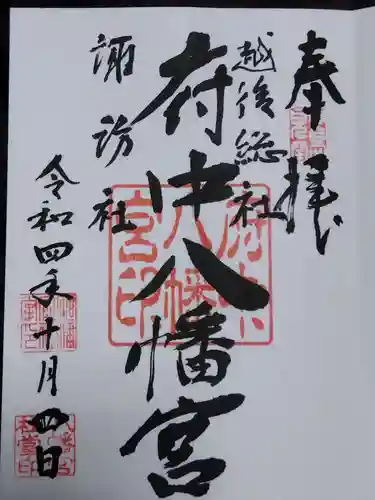 奉拝
越後総社
府中八幡宮
諏訪社
令和四年十月四日
府中八幡宮印